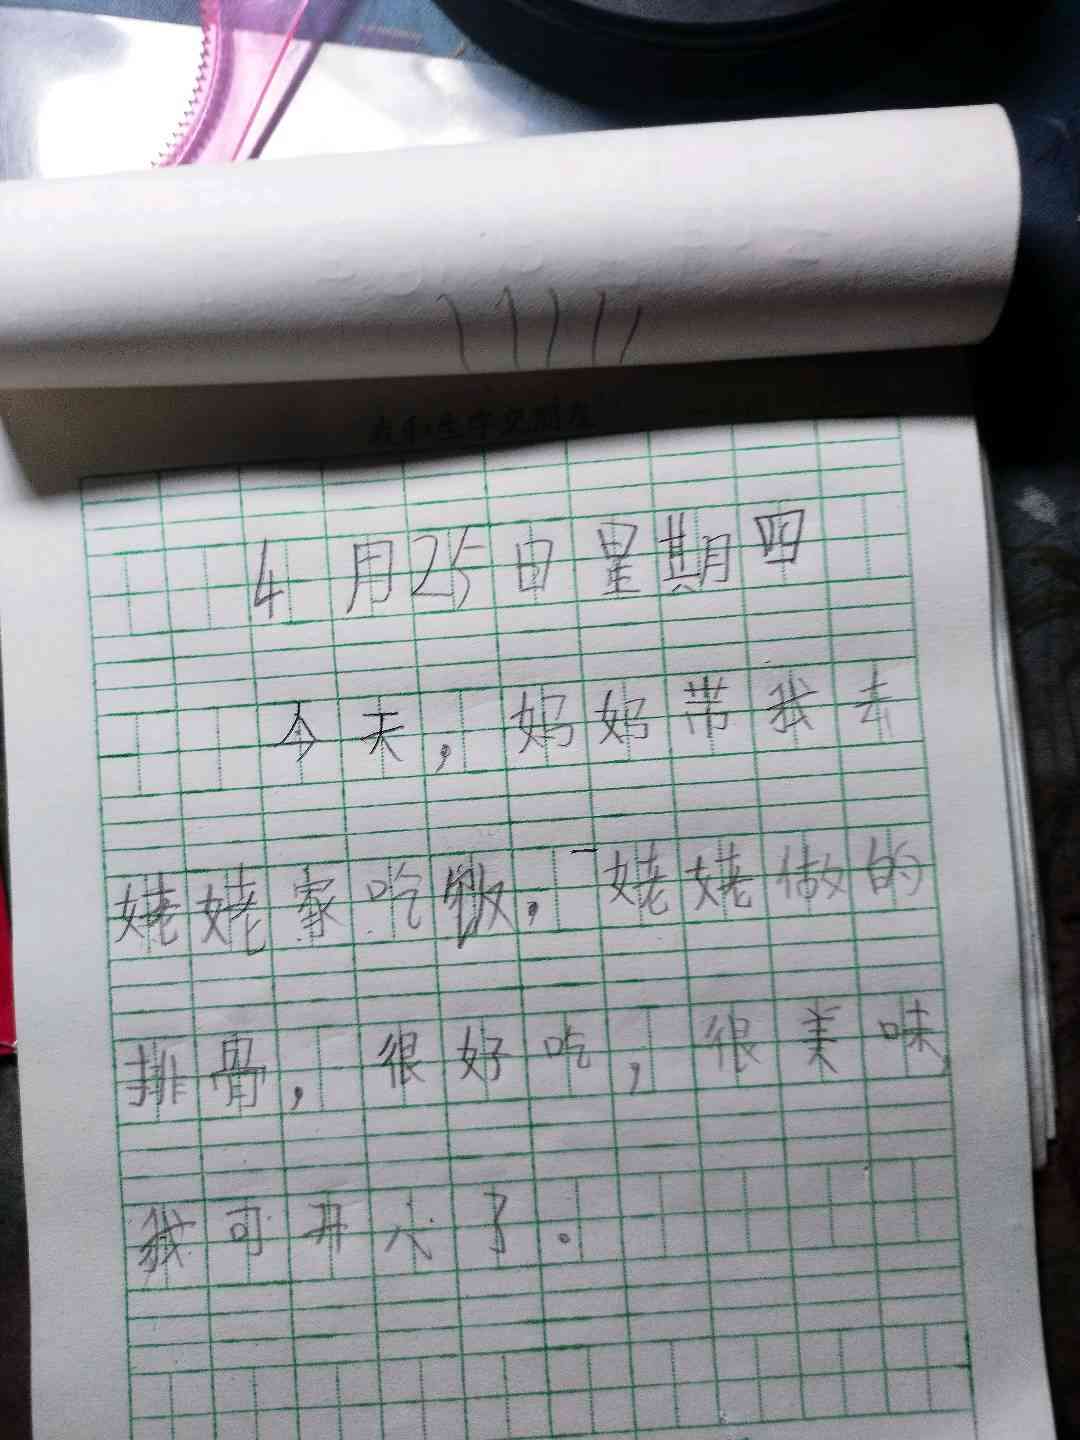 4月25日星期四
今天，妈妈带我去
姥姥家吃饭，姥姥做的
排骨，很好吃，很美味，
我可开心了。